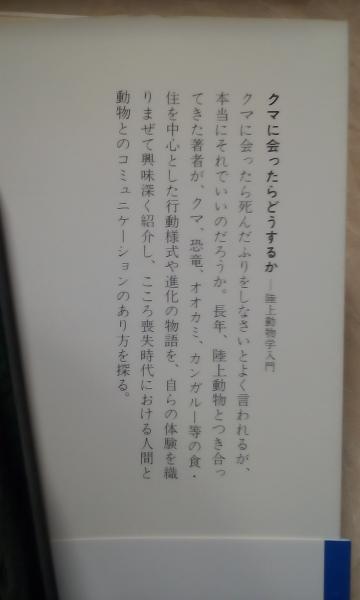 クマに会ったらどうするか―陸上動物学入門
クマに会ったら死んだふりをしなさいとよく言われるが、
本当にそれでいいのだろうか。長年、陸上動物とつき合っ
てきた著者が、クマ、恐竜、オオカミ、カンガルー等の食・
住を中心とした行動様式や進化の物語を、自らの体験を織
りまぜて興味深く紹介し、こころ喪失時代における人間と
動物とのコミュニケーションのあり方を探る。